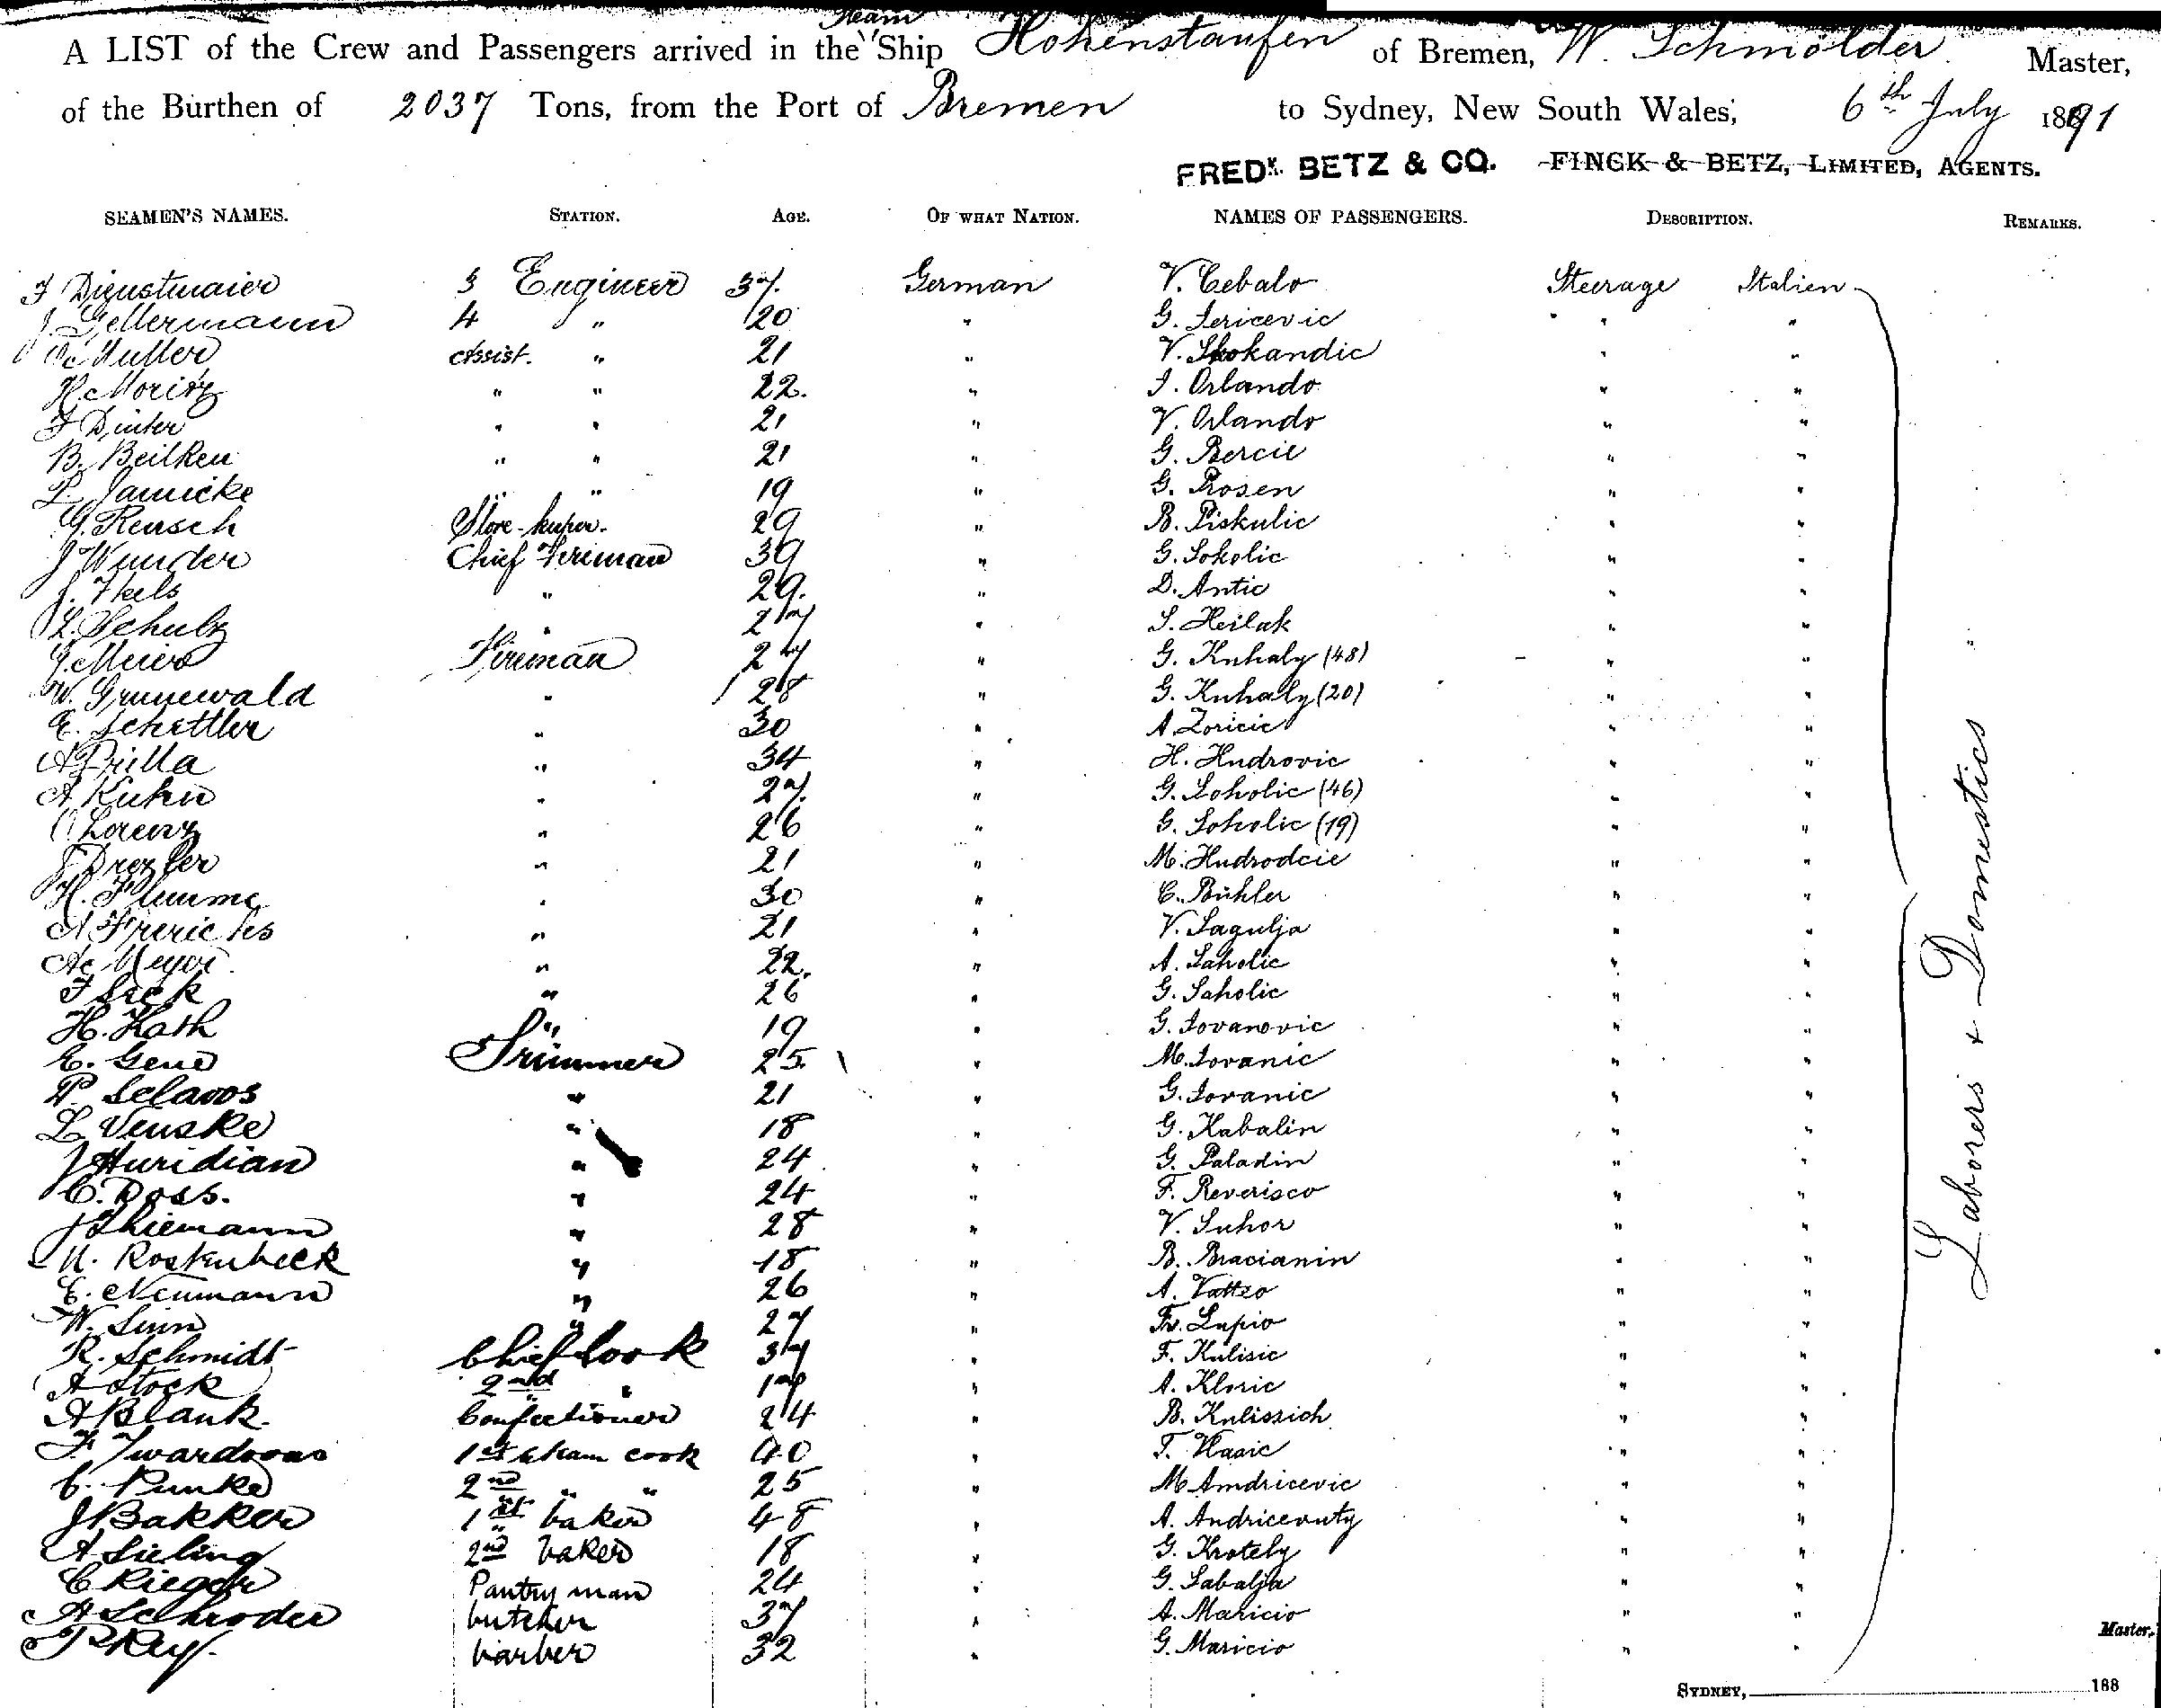 Steam
A LIST of the Crew and Passengers arrived in the "Ship Hohenstaufen of Bremen, W. Schmölder Master,
of the Burthen of 2037 Tons, from the Port of Bremen to Sydney, New South Wales, 6th July 1891
FREDK. BETZ & CO. FINCK & BETZ, LIMITED, AGENTS.
SEAMEN'S NAMES. STATION. AGE. OF WHAT NATION. NAMES OF PASSENGERS. DESCRIPTION. REMARKS.
F Dienstmaier 3 Engineer 37. German V. Cebalo Steerage Italien
J. Gellermann 4 " 20 " G. Sericevic " "
Muller Assist. " 21 " V. Skokandic " "
H. Moritz " " 22. " I. Orlando " "
F Dinter " " 21 " V. Orlando " "
B. Beilken " " 21 " G. Bercie " "
P. Jamicke " " 19 " G. Prosen " "
G. Rensch Store-keeper. 29 " B. Piskulic " "
J Wunder Chief Fireman 39 " G. Sokolic " "
J. Heels " 29. " D. Antic " "
L. Schulz " 27 " S. Heilak " "
G. Meier Fireman 27 " G. Knhaly (48) " "
W. Grunewald " 28 " G. Knhaly (20) " "
E. Schettler " 30 " A Zoricic " "
A Prilla " 34 " H. Hudrovic " "
A Kuhn " 27. " G. Soholic (46) " "
O Lorenz " 26 " G. Soholic (19) " "
F Drexler " 21 " M. Hudrodcie " "
H. Plumme " 30 " C. Bühler " "
A Frerichs " 21 " V. Sagulja " "
A. Meyer " 22. " A. Saholic " "
F Sick " 26 " G. Saholic " "
H. Kath " 19 " G. Iovanovic " "
E. Gene Trimmer 25. " M. Iovanic " "
P. Sclavos " 21 " G. Iovanic " "
L Venske " 18 " G. Kabalin " "
J Huridian " 24 " G. Paladin " "
C. Doss. " 24 " F. Reverisco " "
J Thiemann " 28 " V. Suhor " "
N. Roskenbeck " 18 " B. Bracianin " "
E. Neumann " 26 " A. Vatteo " "
W. Sinn " 27 " Fr. Lupio " "
R. Schmidt Chief Cook 37 " F. Kulisic " "
A Stock 2nd " 17 " A. Kloric " "
A Blank. Confectioner 24 " B. Kulissich " "
F. Twardowas 1st steam cook 40 " T. Vlasic " "
C. Punke 2nd " " 25 " M. Amdricevic " "
J Bakker 1st baker 48 " A. Andricevuty " "
A Sieling 2nd baker 18 " G. Krotely " "
C Rieger Pantry man 24 " G. Sabalja " "
A Schroder butcher 37 " A. Maricio " "
P Rey. barber 32 " G. Maricio " "
Laborers + Domestics
Master.
SYDNEY, 188